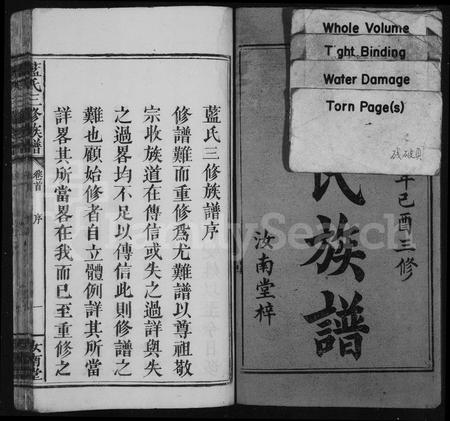 Whole Volume
Tight Binding
Water Damage
Torn Page(s)
残破頁
年己酉三修
氏族譜
汝南堂梓
藍氏三修族譜序
修譜難而重修爲尤難譜以尊祖敬
宗收族道在傳信或失之過詳與失
之過畧均不足以傳信此則修譜之
難也顧始修者自立體例詳其所當
詳畧其所當畧在我而已至重修之
藍氏三修族譜
卷首
序
一
汝南堂
FamilySearch